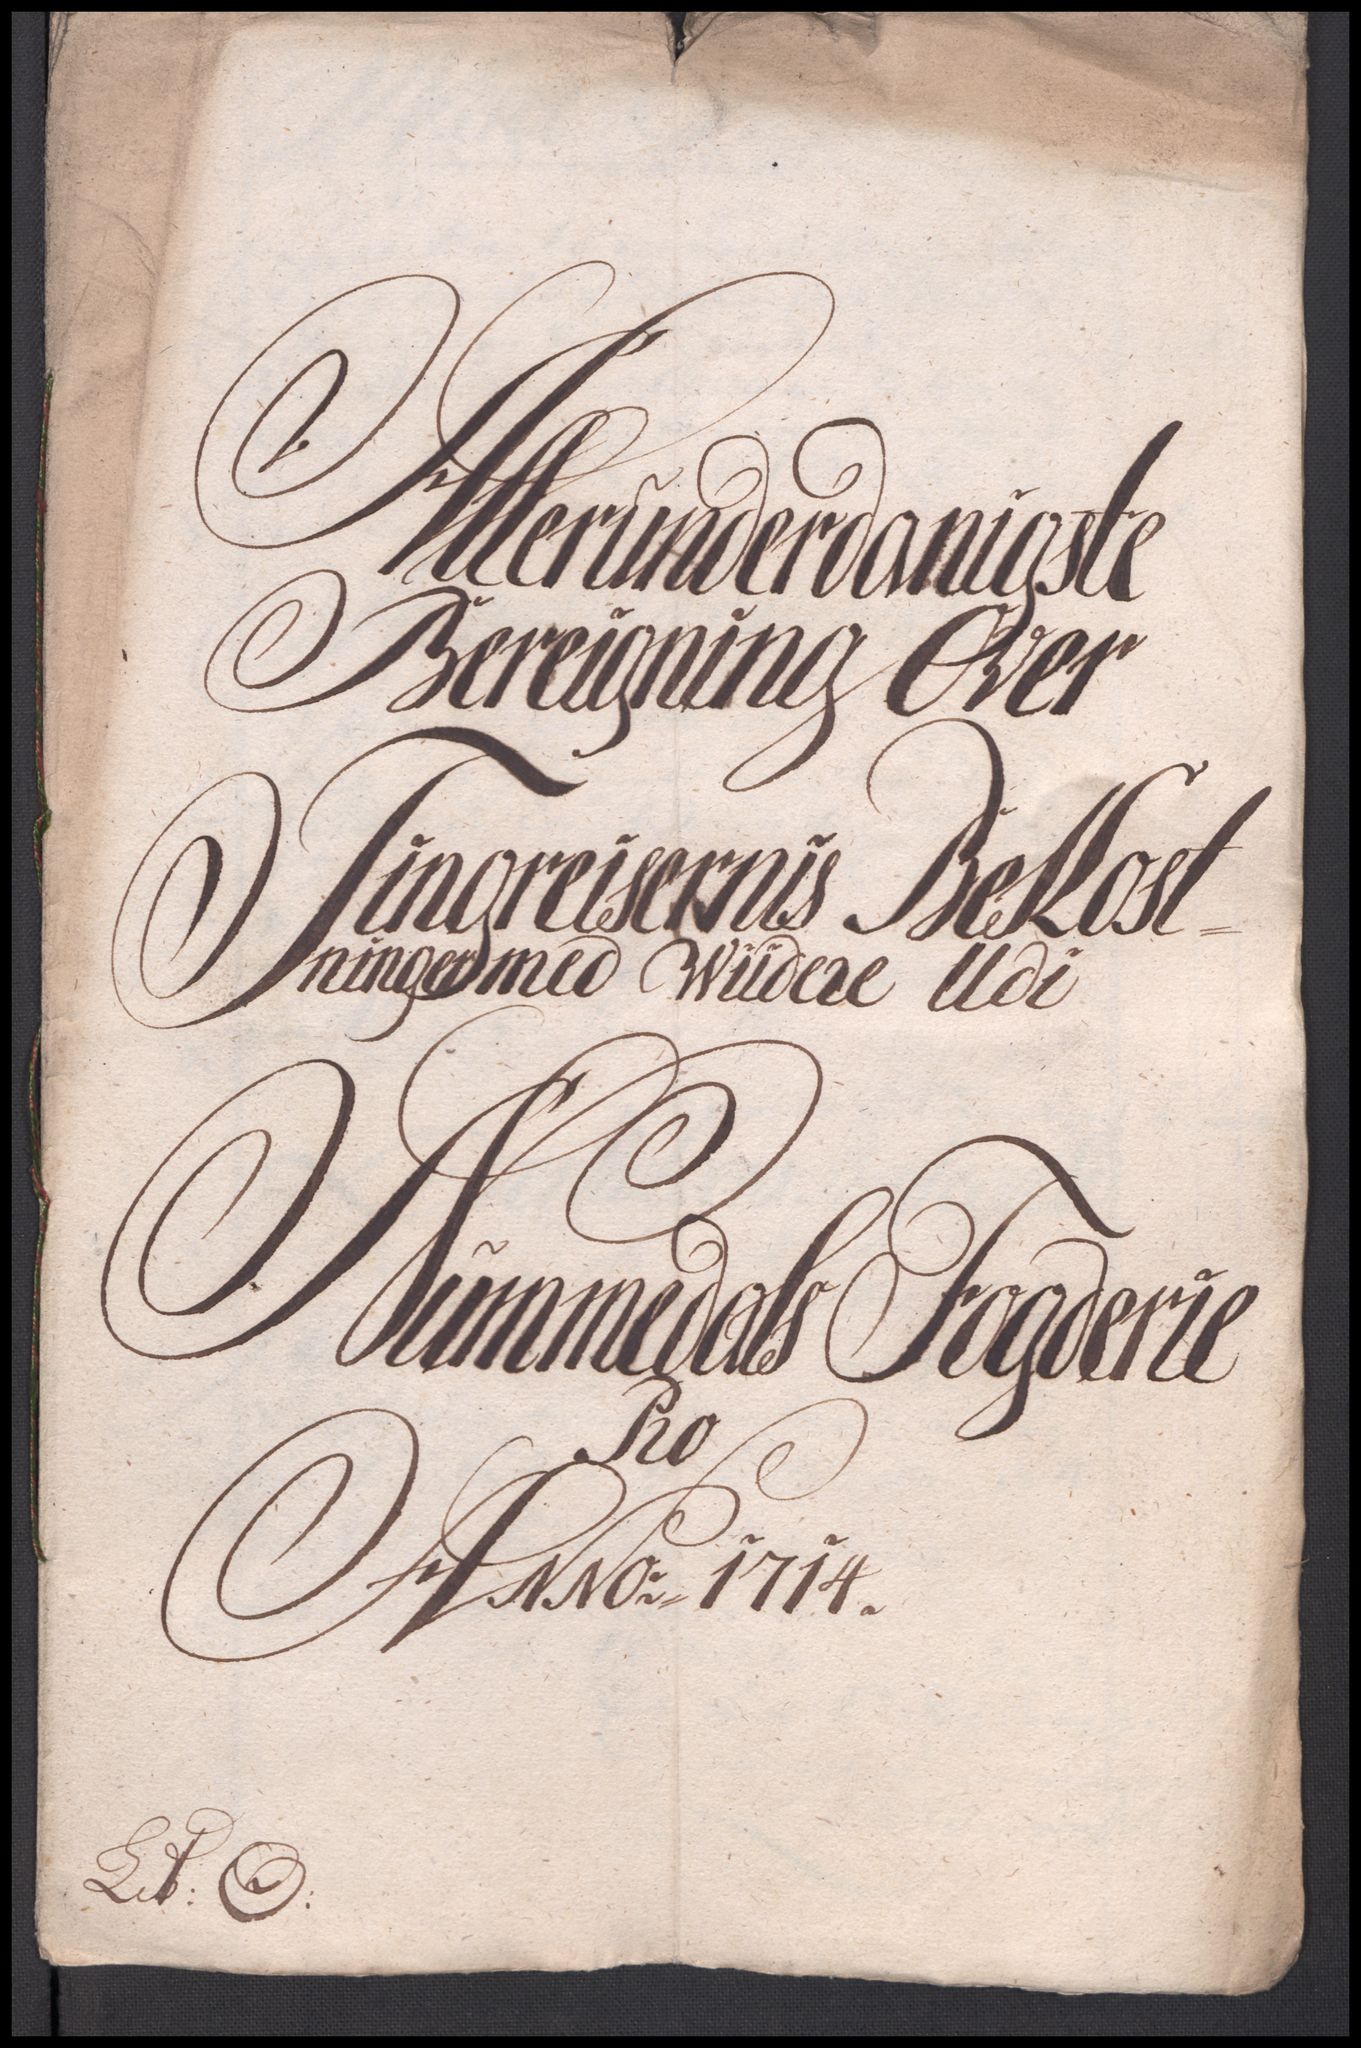 Allerunderdanigste
Bereigning Over
Tingreisernis Bekost=
ninger med Wiidere Udi
Nummedals Fogderie
Pro
ANNO:= 1714.
Lit: O: